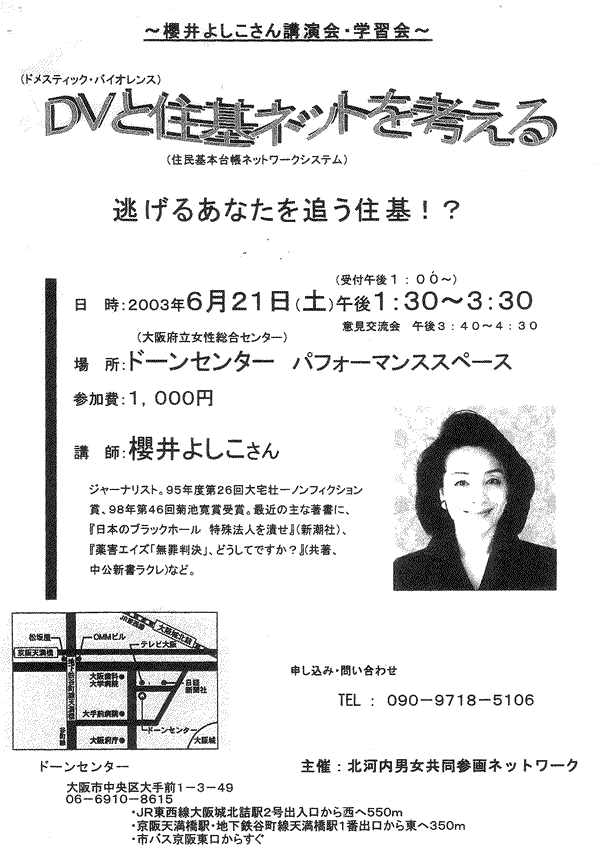 ～櫻井よしこさん講演会・学習会～
(ドメスティック・バイオレンス)
DVと住基ネットを考える
(住民基本台帳ネットワークシステム)
逃げるあなたを追う住基！？
(受付午後1：00～)
日　時：2003年6月21日(土)午後1：30～3：30
意見交流会　午後3：40～4：30
(大阪府立女性総合センター)
場　所：ドーンセンター　パフォーマンススペース
参加費：1，000円
講　師：櫻井よしこさん
ジャーナリスト。95年度第26回大宅壮一ノンフィクション
賞、98年第46回菊池寛賞受賞。最近の主な著書に、
『日本のブラックホール　特殊法人を潰せ』(新潮社)、
『薬害エイズ「無罪判決」、どうしてですか？』(共著、
中公新書ラクレ)など。
JR東西線
大阪城北詰
松坂屋
OMMビル
テレビ大阪
京阪天満橋
地下鉄谷町線天満橋
大阪歯科
大学病院
日経
新聞社
大手前病院
ドーンセンター
大阪府庁
大阪城
谷町線
申し込み・問い合わせ
TEL ： 090－9718－5106
ドーンセンター
主催：北河内男女共同参画ネットワーク
大阪市中央区大手前1－3－49
06－6910－8615
・JR東西線大阪城北詰駅2号出入口から西へ550m
・京阪天満橋駅・地下鉄谷町線天満橋駅1番出口から東へ350m
・市バス京阪東口からすぐ